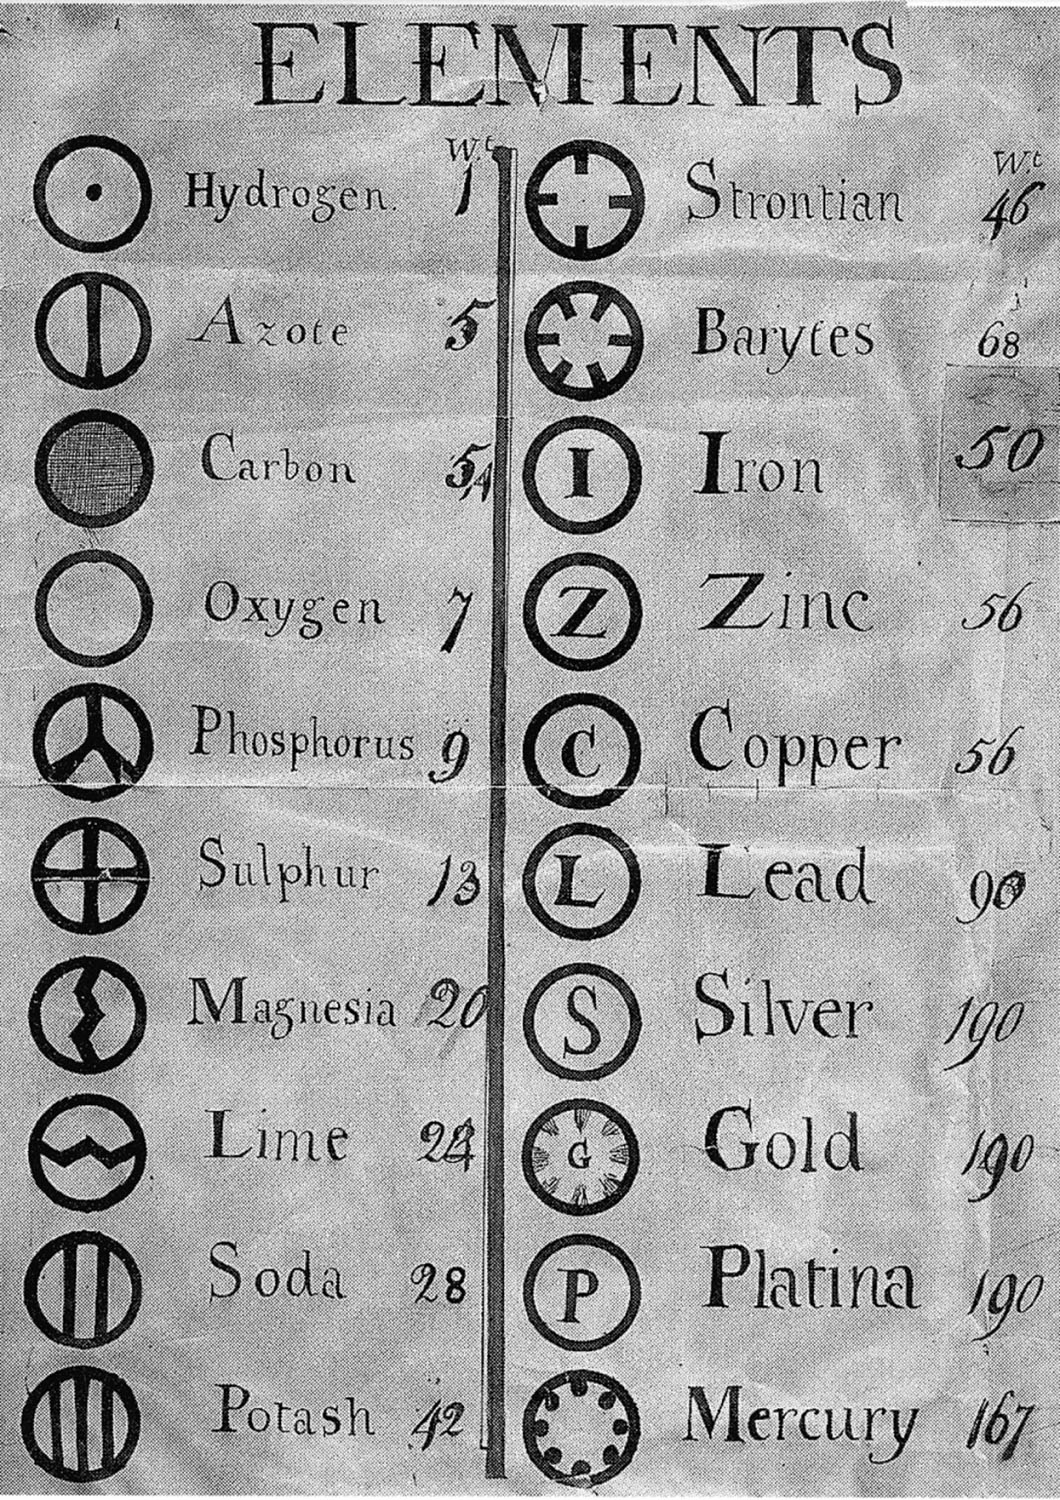 ELEMENTS
W.t
Hydrogen. 1
Azote 5
Carbon 5,4
Oxygen 7
Phosphorus 9
Sulphur 13
Magnesia 20
Lime 24
Soda 28
Potash 42
W.t
Strontian 46
Barytes 68
I Iron 50
Z Zinc 56
C Copper 56
L Lead 90
S Silver 190
G Gold 190
P Platina 190
Mercury 167